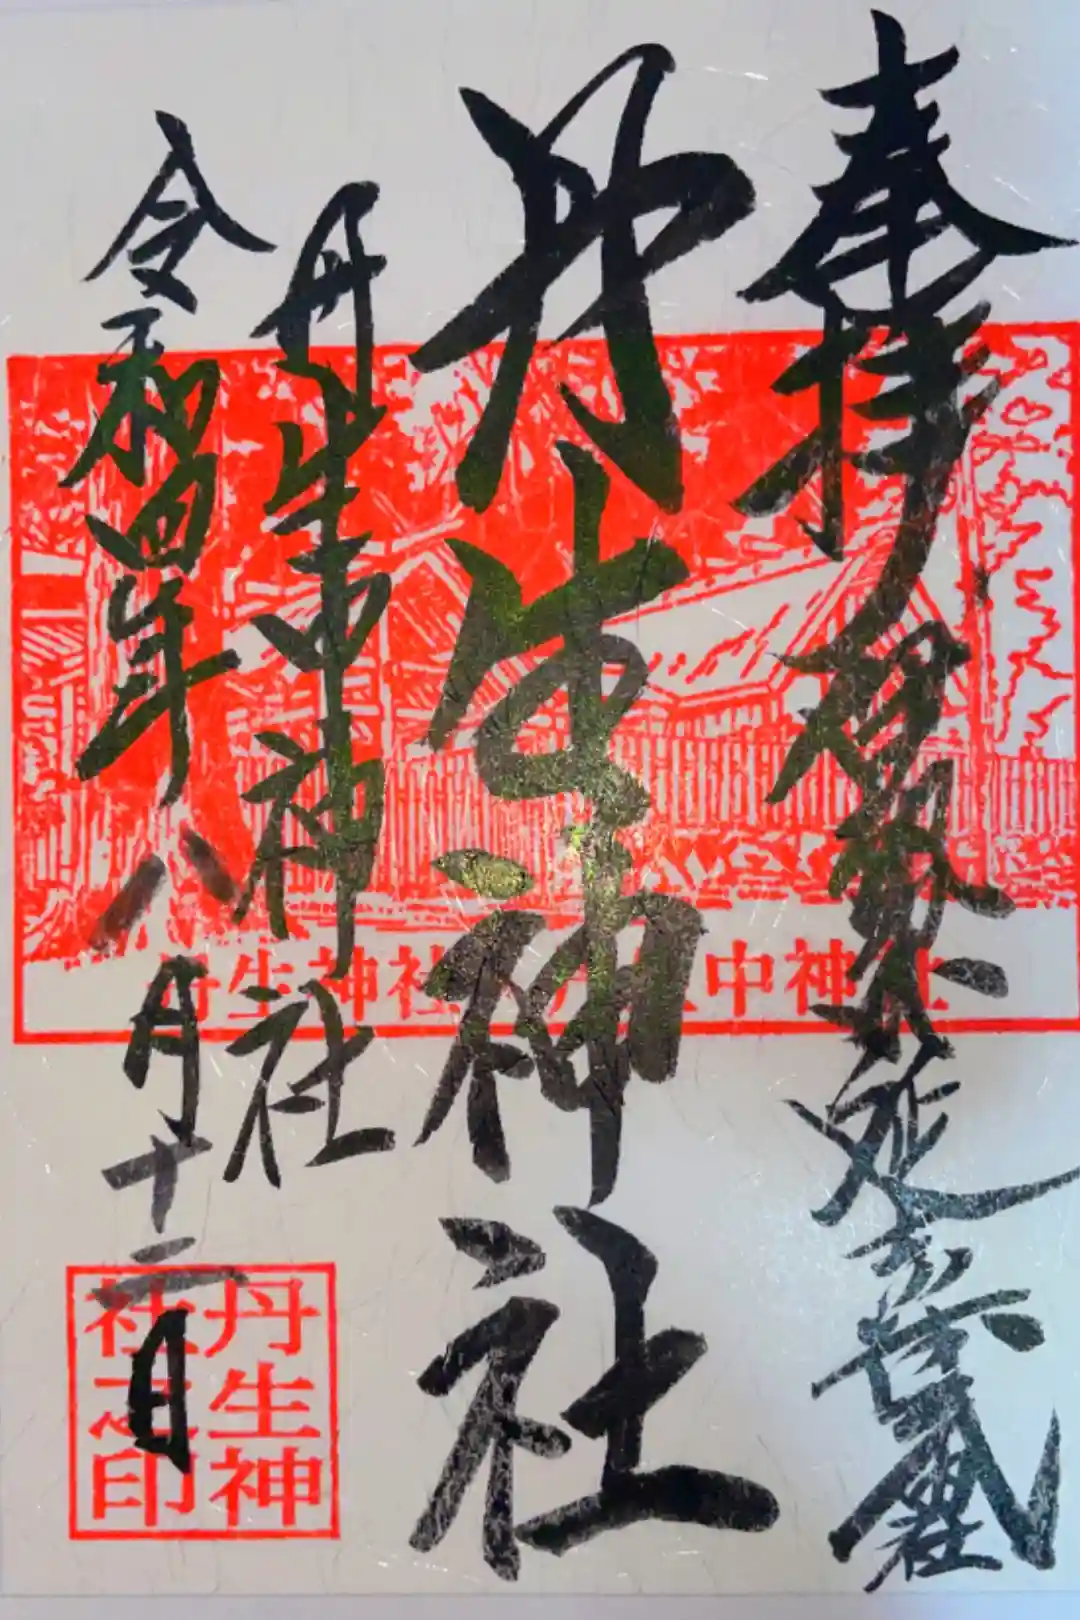 奉拝
延喜式内社
丹生神社
丹生中神社
令和四年八月十二日
丹生神社 丹生中神社
丹生神
社之印